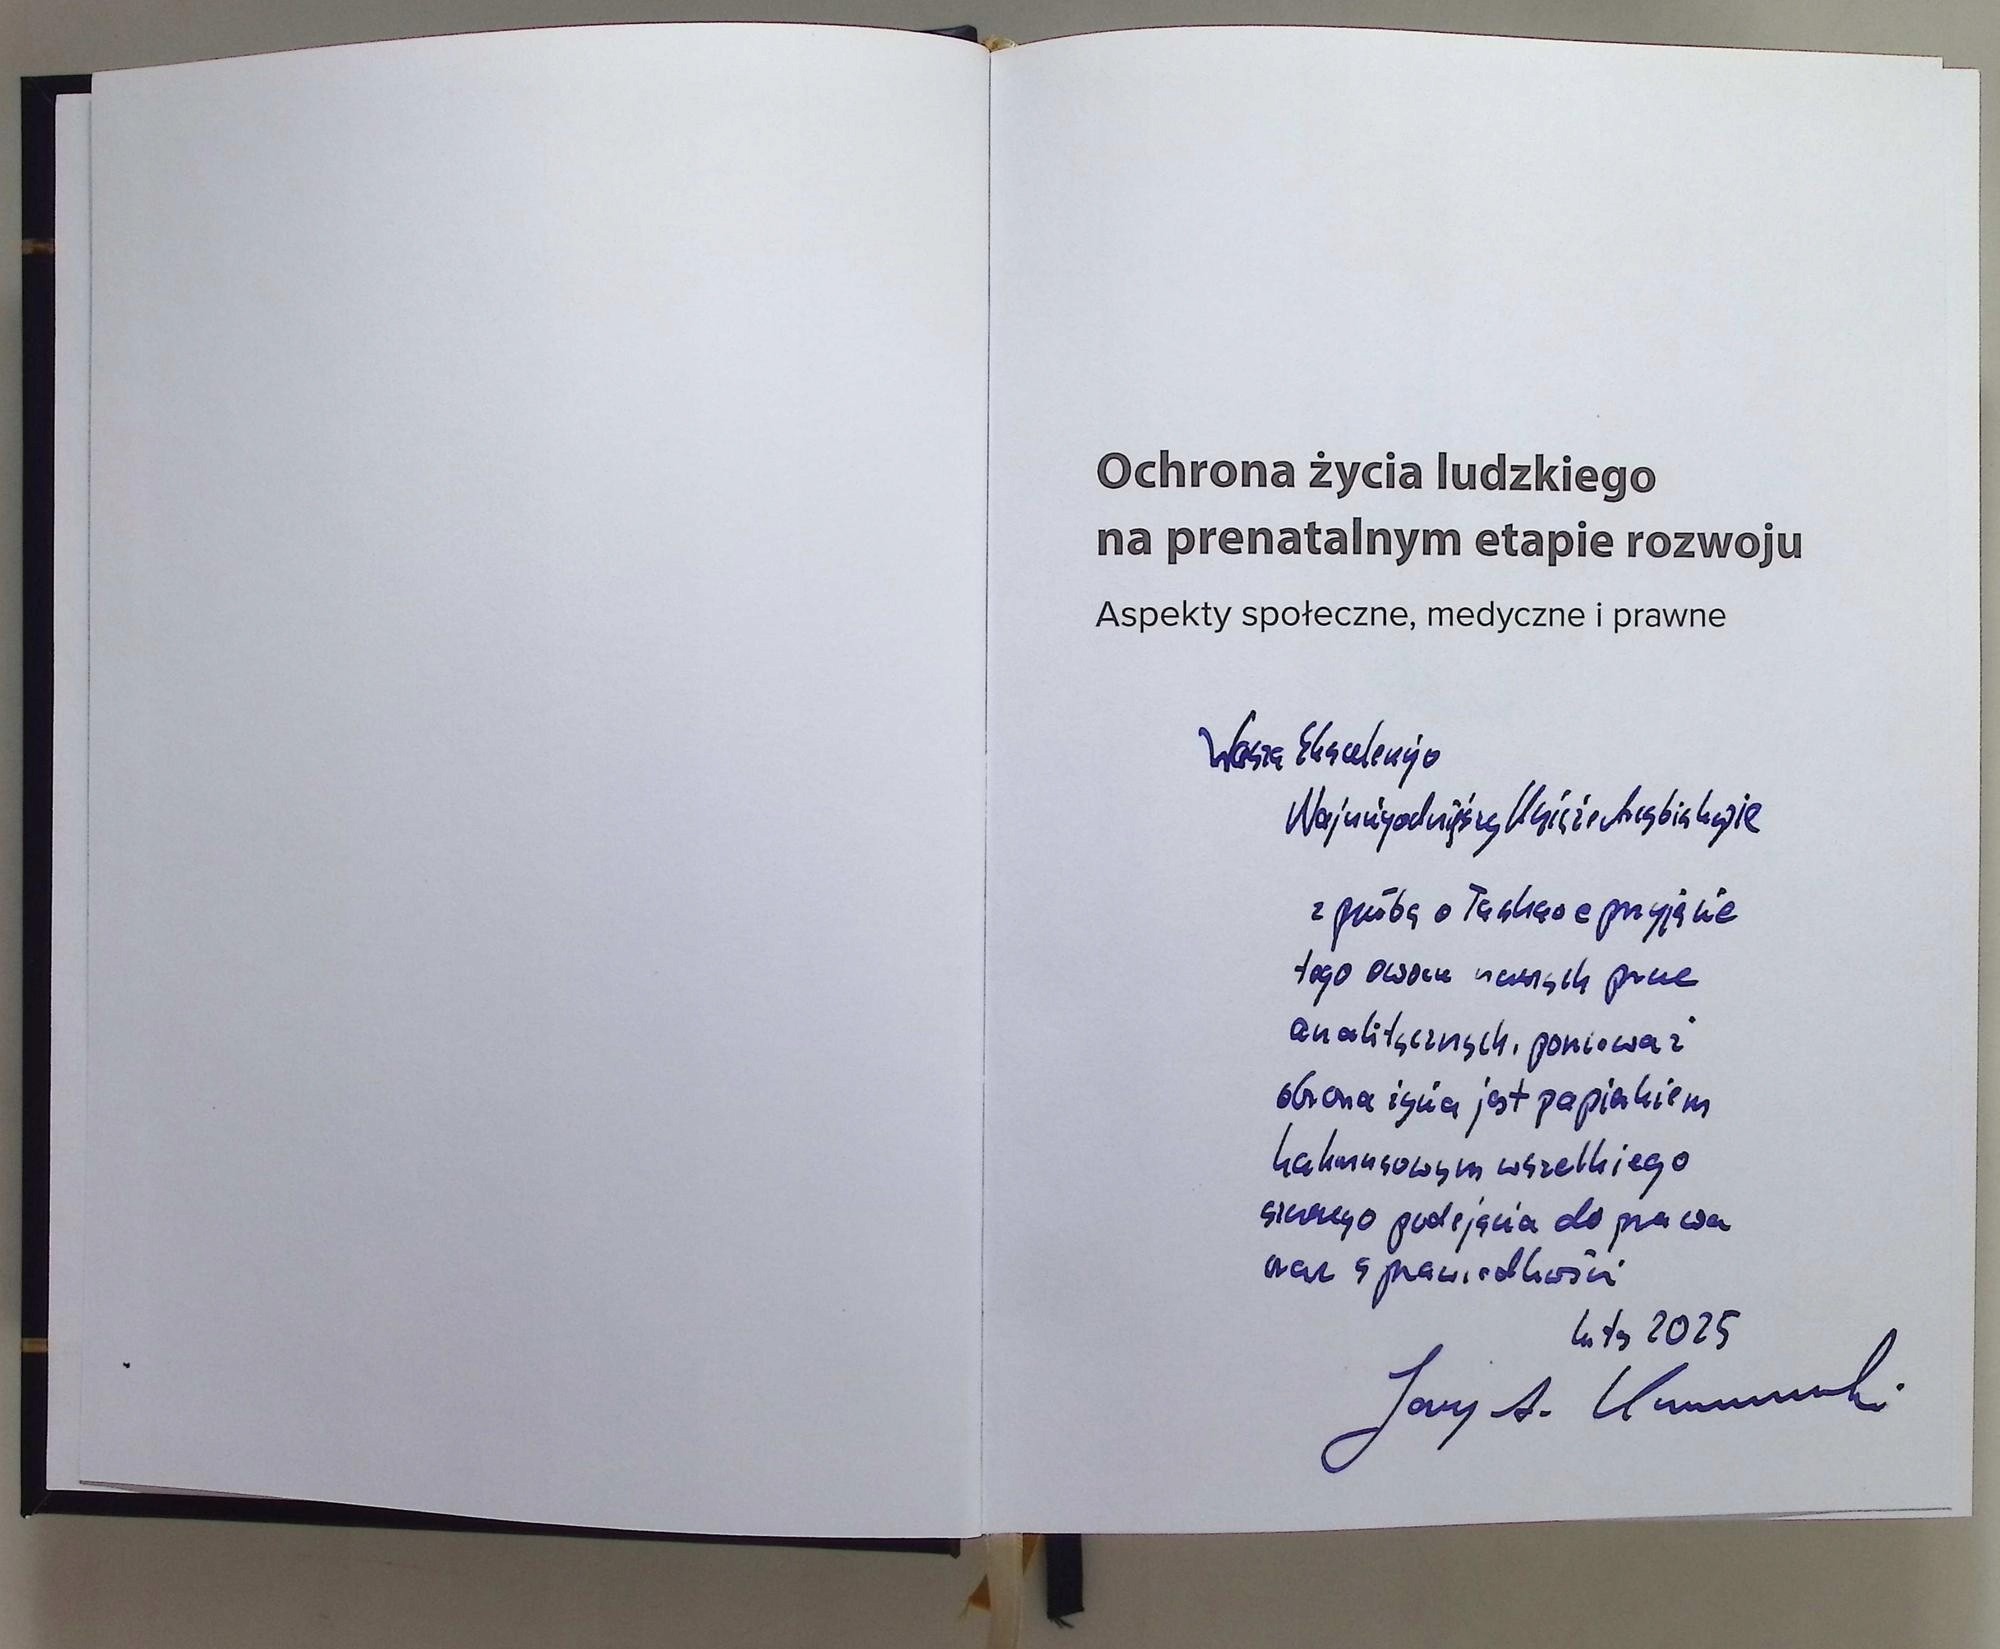 Ochrona życia ludzkiego
na prenatalnym etapie rozwoju
Aspekty społeczne, medyczne i prawne
Wasza Ekscelencjo
Najczcigodniejszy Księże Arcybiskupie
z prośbą o łaskawe przyjęcie
tego owocu naszych prac
analitycznych, ponieważ
obrona życia jest papierkiem
lakmusowym wszelkiego
podejścia do prawa
oraz sprawiedliwości
luty 2025
Jerzy A.